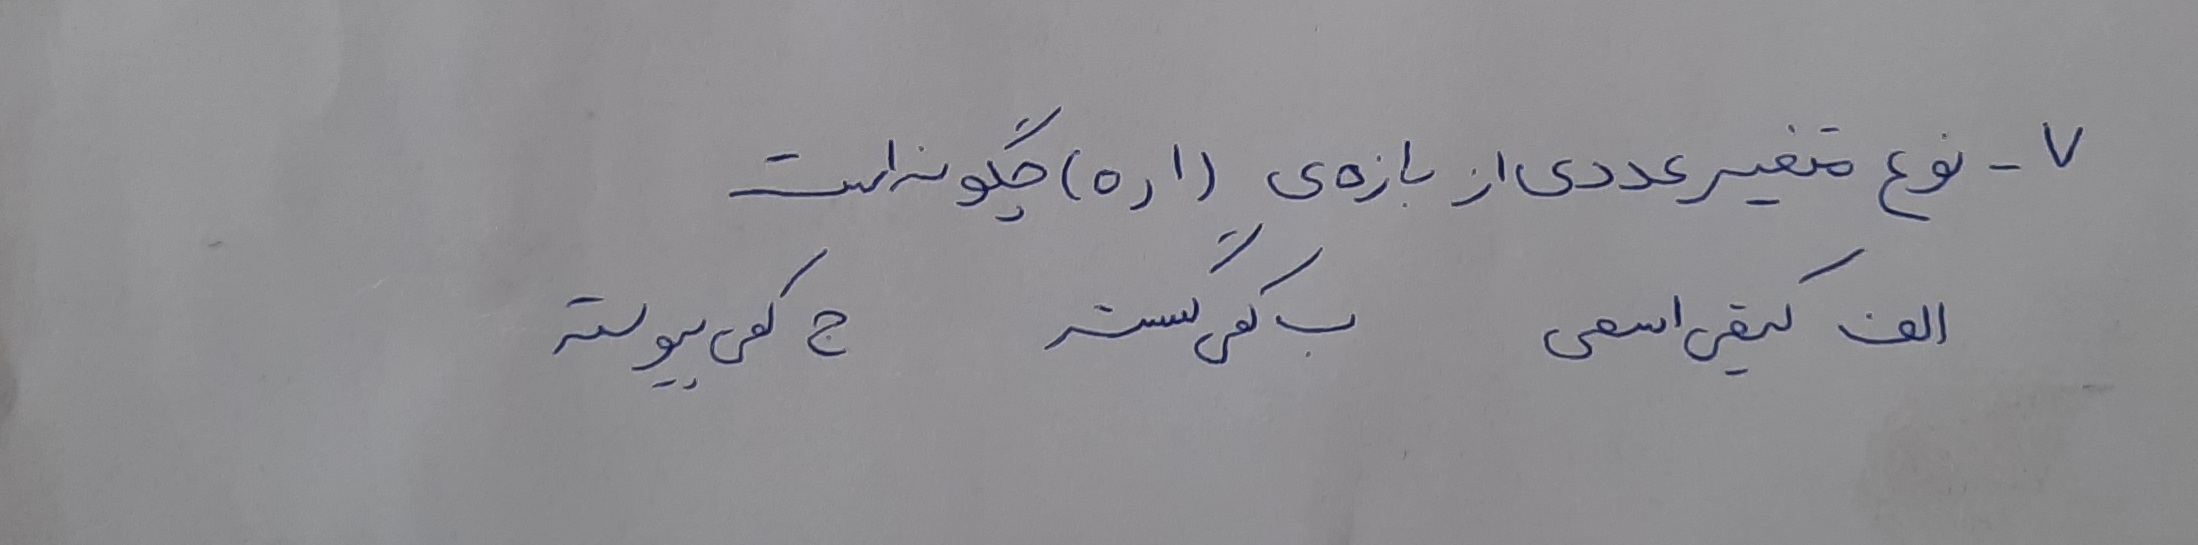 ۷- نوع متغیر عددی از بازه‌ی (۱ , ۰) چگونه است
الف کیفی اسمی ب کمی گسسته ج کمی پیوسته